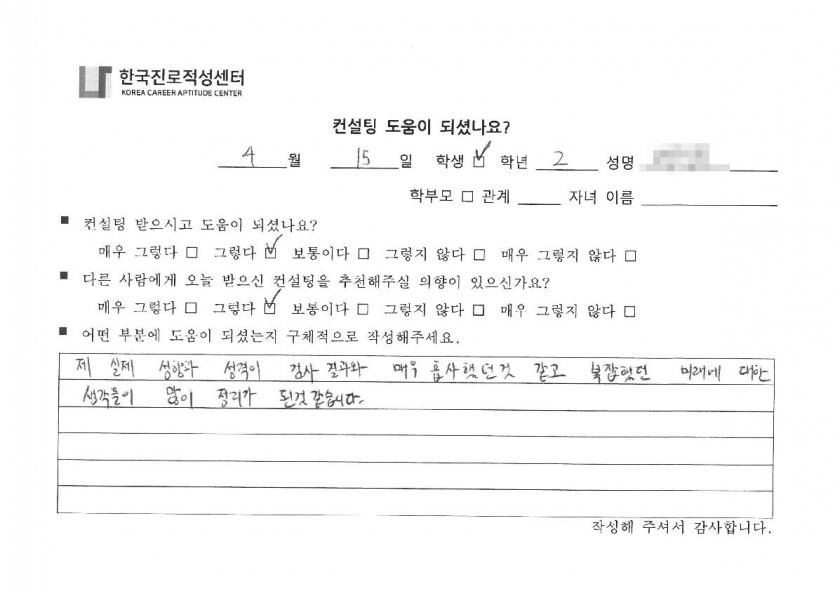 한국진로적성센터
KOREA CAREER APTITUDE CENTER
컨설팅 도움이 되셨나요?
4 월 15 일 학생 ☑ 학년 2 성명
학부모 □ 관계 자녀 이름
■ 컨설팅 받으시고 도움이 되셨나요?
매우 그렇다 □ 그렇다 ☑ 보통이다 □ 그렇지 않다 □ 매우 그렇지 않다 □
■ 다른 사람에게 오늘 받으신 컨설팅을 추천해주실 의향이 있으신가요?
매우 그렇다 □ 그렇다 ☑ 보통이다 □ 그렇지 않다 □ 매우 그렇지 않다 □
■ 어떤 부분에 도움이 되셨는지 구체적으로 작성해주세요.
제 실제 성향과 성격이 검사 결과와 매우 흡사했던것 같고 복잡했던 미래에 대한
생각들이 많이 정리가 된것 같습니다.
작성해 주셔서 감사합니다.